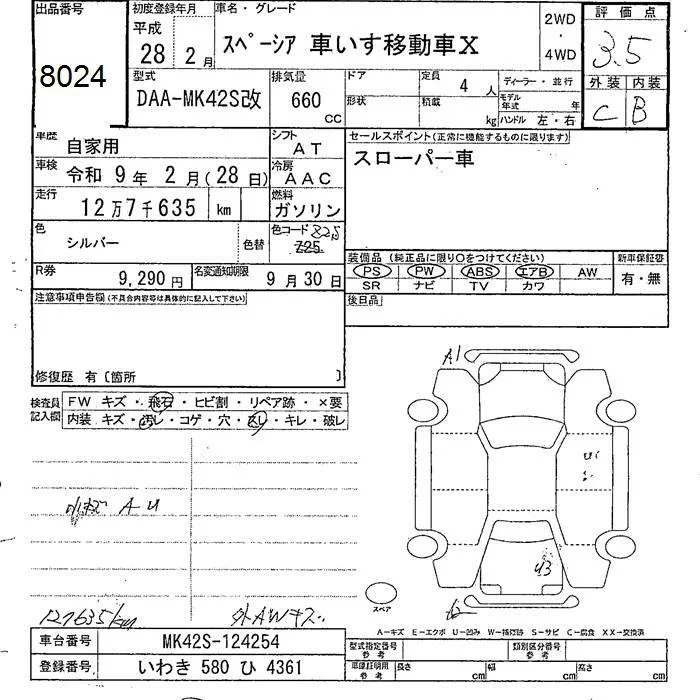 出品番号 8024
初度登録年月 平成 28 2月
車名・グレード スペーシア 車いす移動車X
2WD・4WD
評価点 3.5
外装 内装
C B
型式 DAA-MK42S改
排気量 660 CC
ドア
形状
定員 4 人
積載 kg
ディーラー・並行
モデル年式 年
ハンドル 左・右
車歴 自家用
シフト AT
車検 令和 9年 2月(28日)
冷房 AAC
走行 12万7千635 km
燃料 ガソリン
色 シルバー 色替
色コード
セールスポイント(正常に機能するものに限ります)
スローパー車
装備品 (純正品に限り○をつけてください)
PS PW ABS エアB AW
SR ナビ TV カワ
新車保証書 有・無
後日品
R券 9,290円
名変通知期限 9月30日
注意事項申告欄 (不具合内容等は具体的に記入して下さい)
修復歴 有〔箇所 〕
検査員記入欄
FW キズ・飛石・ヒビ割・リペア跡・×要
内装 キズ・汚レ・コゲ・穴・スレ・キレ・破レ
A U
127635km
外AWキズ
A1
U3
スペア
A−キズ E−エクボ U−凹み W−補修跡 S−サビ C−腐食 XX−交換済
車台番号 MK42S-124254
登録番号 いわき 580 ひ 4361
型式指定番号 参考
類別区分番号 参考
車庫証明用 参考
長さ cm 幅 cm 高さ cm